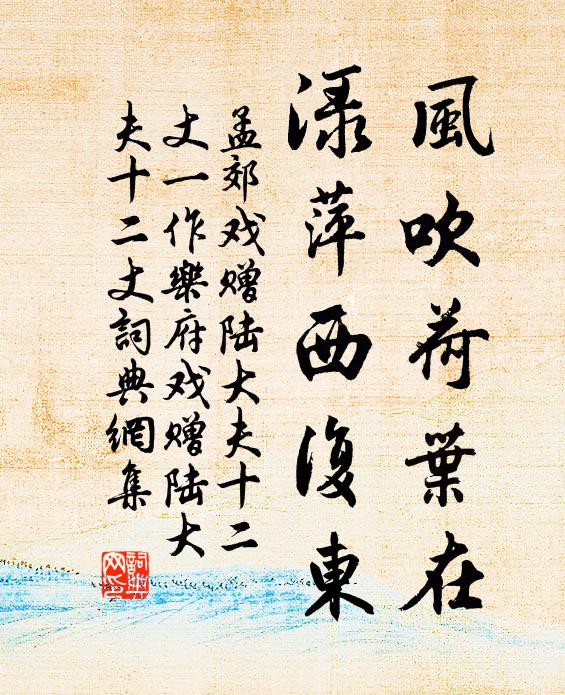 風吹荷葉在
渌萍西復東
孟郊戏赠陆大夫十二
丈一作樂府戏赠陆大
夫十二丈詞典網集